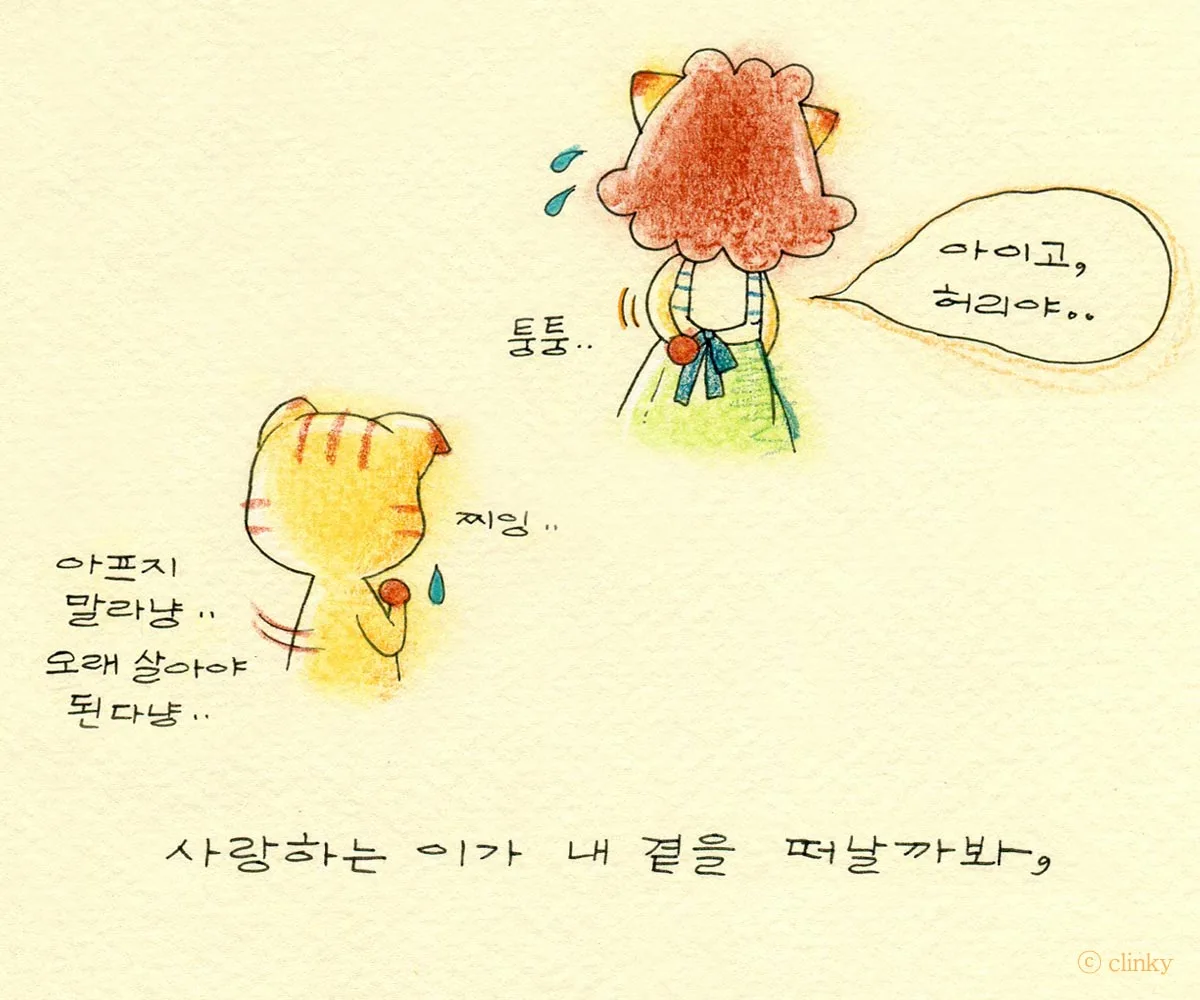 아이고,
허리야..
퉁퉁..
찌잉..
아프지
말라냥..
오래 살아야
된다냥..
사랑하는 이가 내 곁을 떠날까봐,
ⓒ clinky